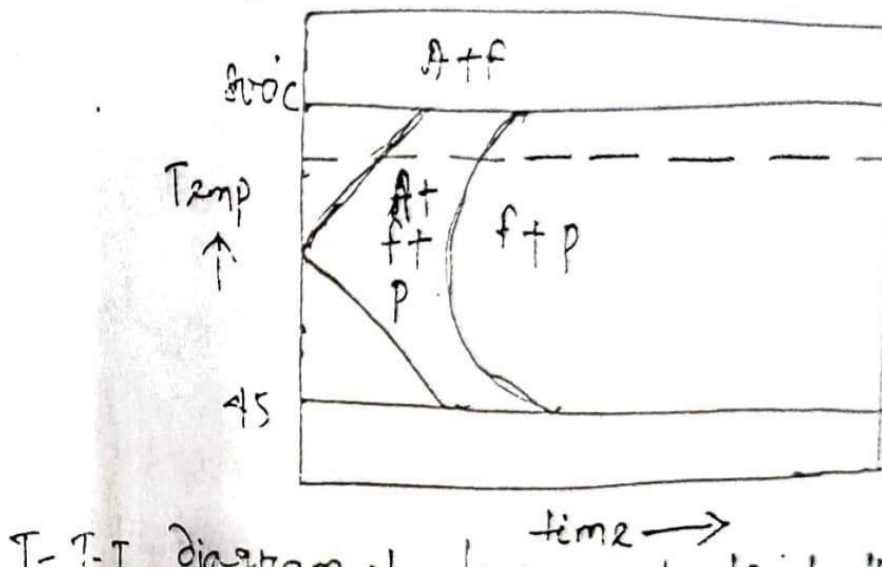 A+f
Temp
↑
A+
f+
p
f+p
45
time →
T-T-T diagram